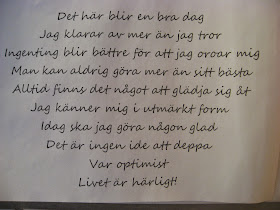 Det här blir en bra dag
Jag klarar av mer än jag tror
Ingenting blir bättre för att jag oroar mig
Man kan aldrig göra mer än sitt bästa
Alltid finns det något att glädja sig åt
Jag känner mig i utmärkt form
Idag ska jag göra någon glad
Det är ingen ide att deppa
Var optimist
Livet är härligt!